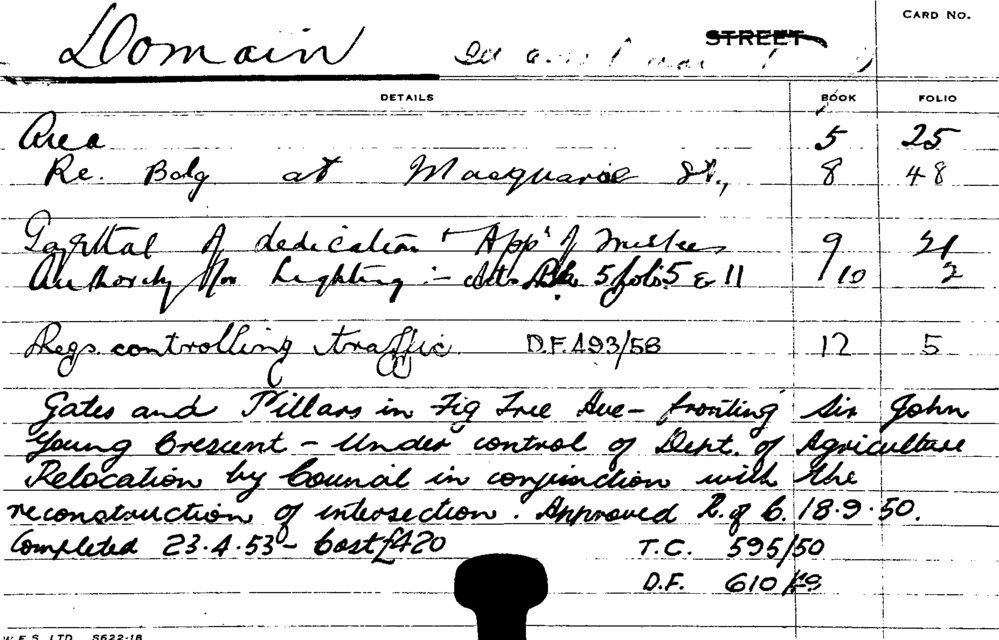 CARD No.
Domain STREET
DETAILS BOOK FOLIO
Area 5 25
Re. Bdg at Macquarie St., 8 48
Gazettal of dedication & App' of Trustees 9 21
Authority for Lighting :- 5 folio 5 & 11 10 2
Regs. controlling traffic. D.F. 493/58 12 5
Gates and Pillars in Fig Tree Ave - fronting Sir John
Young Crescent - Under control of Dept. of Agriculture
Relocation by Council in conjunction with the
reconstruction of intersection. Approved R. of C. 18.9.50.
Completed 23.4.53 - Cost £420 T.C. 595/50
D.F. 610/49
W.E.S. LTD. S622-18